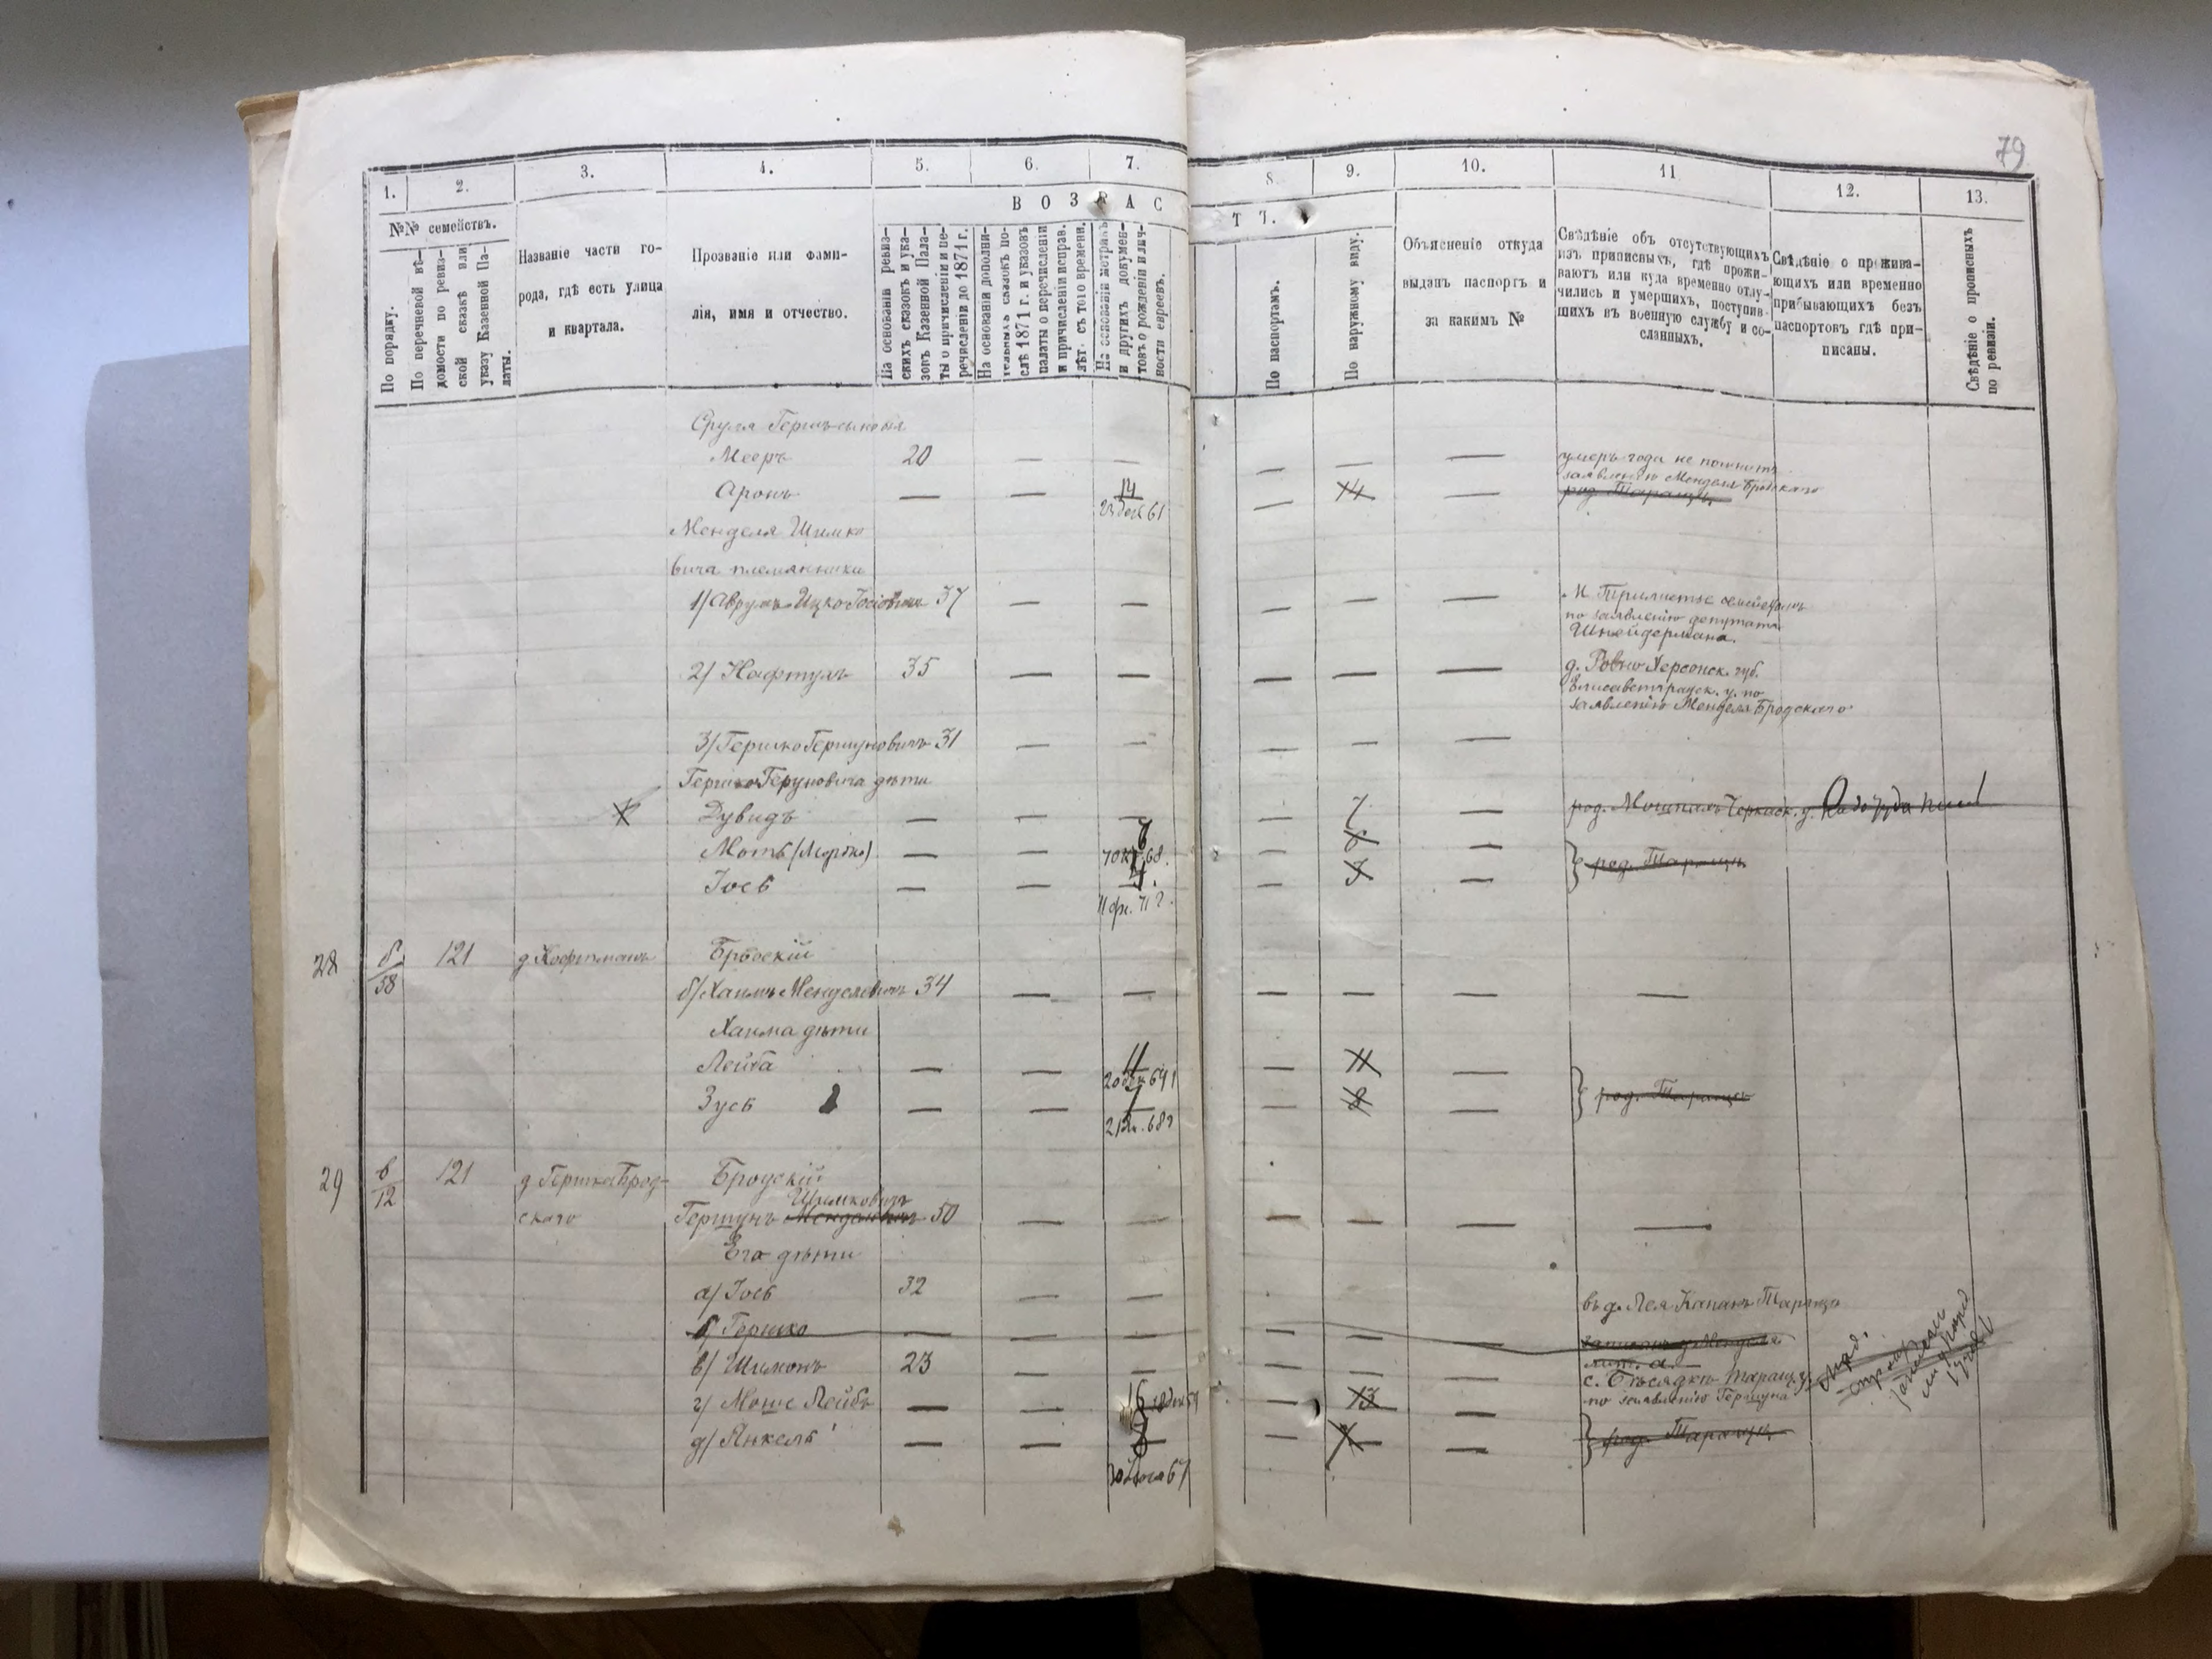 79
1. 2. 3. 4. 5. 6. 7. 8. 9. 10. 11 12. 13.
ВОЗРАС
ТЪ.
№№ семействъ.
По порядку.
По перечневой вѣ-
домости по ревиз-
ской сказкѣ или
указу Казенной Па-
латы.
Названіе части го-
рода, гдѣ есть улица
и квартала.
Прозваніе или фами-
лія, имя и отчество.
На основаніи ревиз-
скихъ сказокъ и ука-
зовъ Казенной Пала-
ты о причисленіи и пе-
речисленіи до 1871 г.
На основаніи дополни-
тельныхъ сказокъ по-
слѣ 1871 г. и указовъ
палаты о перечисленіи
и причисленіи исправ.
лѣт. съ того времени.
На основаніи метрикъ
и другихъ докумен-
товъ о рожденіи и лич-
ности евреевъ.
По паспортамъ.
По наружному виду.
Объясненіе откуда
выданъ паспортъ и
за какимъ №
Свѣдѣніе объ отсутствующихъ
изъ приписныхъ, гдѣ прожи-
ваютъ или куда временно отлу-
чились и умершихъ, поступив-
шихъ въ военную службу и со-
сланныхъ.
Свѣдѣніе о прожива-
ющихъ или временно
прибывающихъ безъ
паспортовъ гдѣ при-
писаны.
Свѣдѣніе о прописныхъ
по ревизіи.
Сруля Гершъ сыновья
Мееръ 20 — — — — — умеръ года не помнитъ
заявленію Менделя Бродскаго
Аронъ — — 14 — 14 — род. Тараща
23 дек 61
Менделя Шимко
вича племянники
1) Аврумъ Ицко Іосіовичъ 37 — — — — —
по заявленію депутата
Шнейдермана.
2) Нафтула 35 — — — — — д. Ровно Херсонск. губ.
Елисаветградск. у. по
заявленію Менделя Бродскаго
3) Гершко Гершуновичъ 31 — — — — —
Гершко Геруновича дѣти
Дувидъ — — — — 7 — род. Мошнахъ Черкаск. у.
Моть (Мордко) — — — 6 — род. Тараща
7 окт. 68.
Іось — — 4. — 5 —
28 б/58 121 д. Кофтмана Бродскій
б) Хаимъ Менделевичъ 34 — — — — — —
Хаима дѣти
Лейба — — 11 — 11 — род. Тараща
Зусь — — 7 — 8 —
29 в/12 121 д. Гершка Брод-
скаго
Бродскій
Шимковичъ
Гершунъ Менделевичъ 50 — — — — — —
Его дѣти
а) Іось 32 — — въ д. Лея Капанъ Тараща
б) Гершко — — — — — — записанъ у Менделя
лит. а.
в) Шимонъ 23 — — — — с. Бѣсядкѣ Таращ. у.
по заявленію Гершуна
г) Моше Лейбъ — — 16 — 13 —
д) Янкель — — — — — род. Тараща